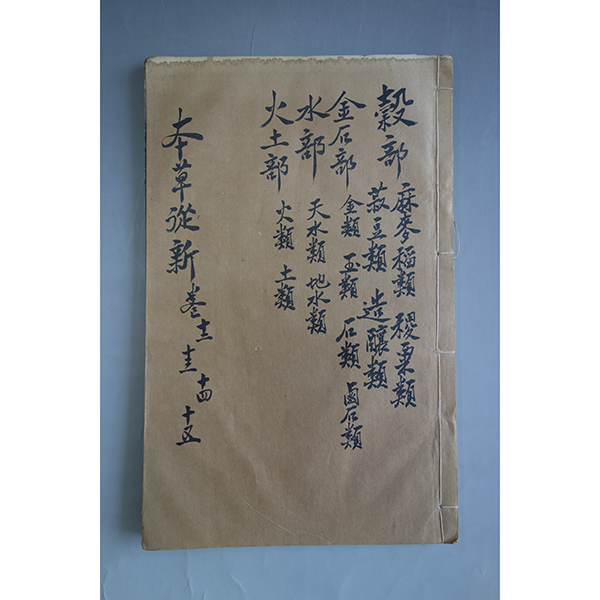 穀部 麻麥稻類 稷粟類
菽豆類 造釀類
金石部 金類 玉類 石類 鹵石類
水部 天水類 地水類
火土部 火類 土類
本草從新 卷十二 十三 十四 十五